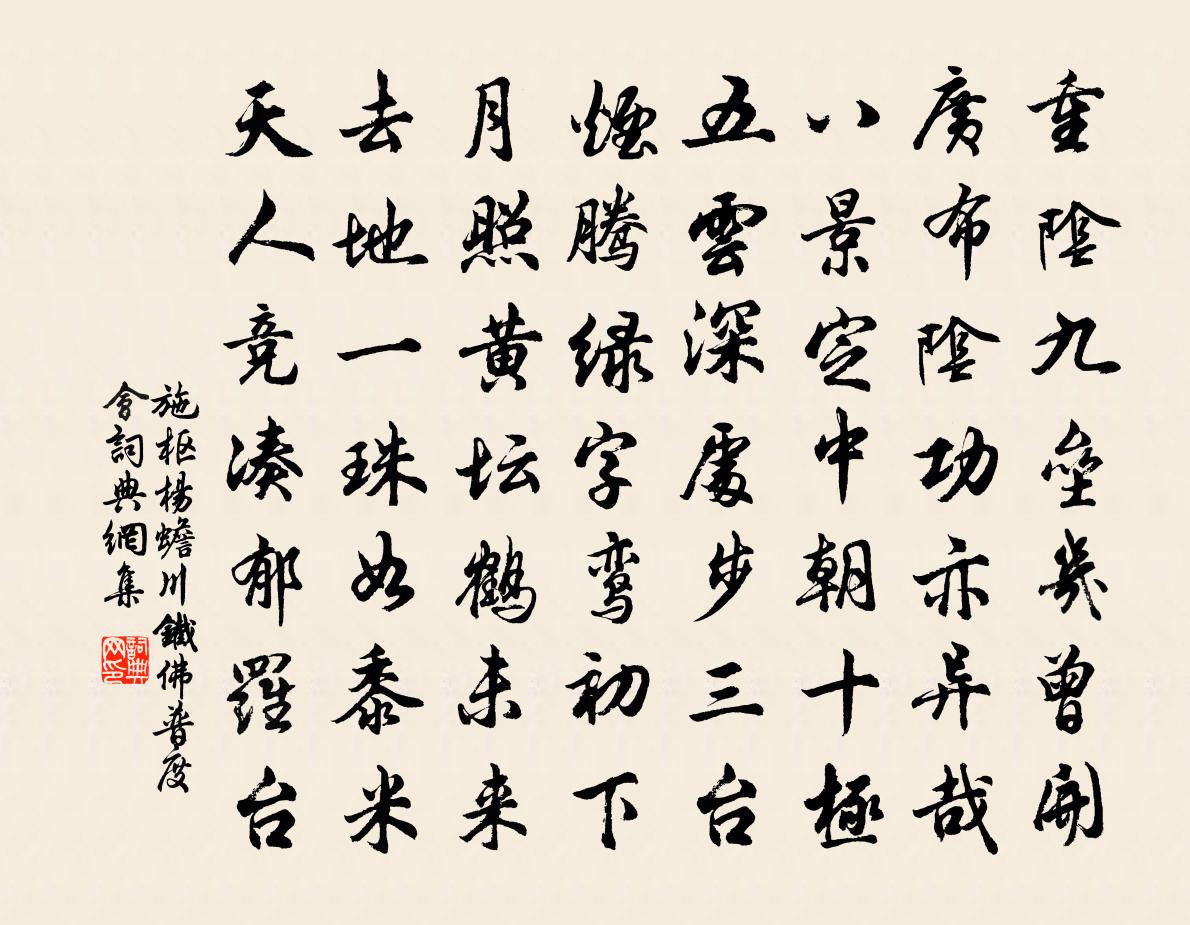 重陰九垒幾曾開
廣布陰功亦异哉
八景定中朝十極
五雲深處步三台
煙騰绿字鸾初下
月照黄坛鶴未来
去地一珠如黍米
天人竞湊郁羅台
施枢楊蟾川鐵佛普度
會詞典網集
詞典网印